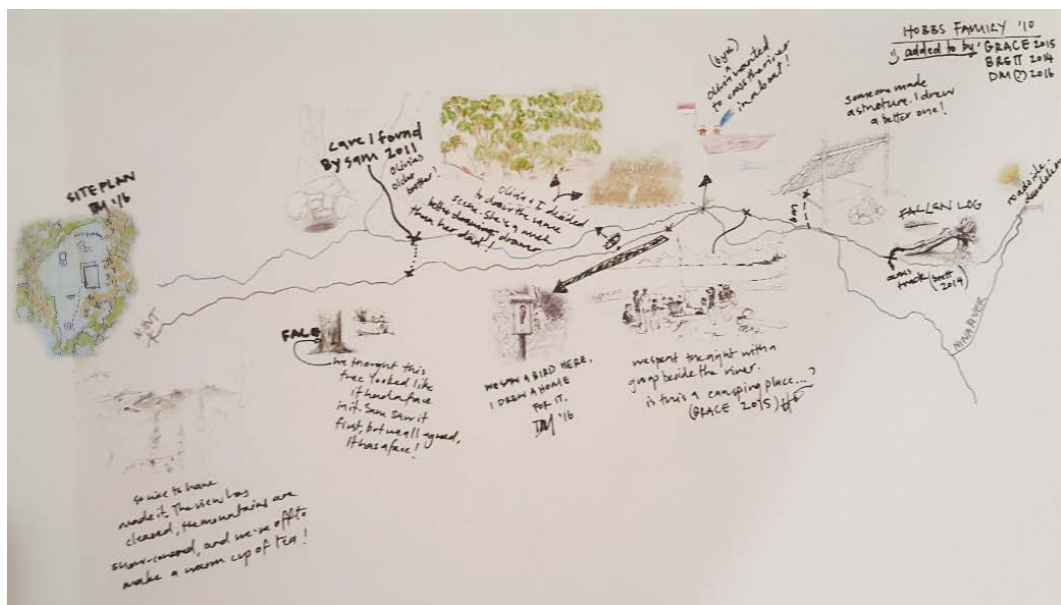 HOBBS FAMILY '10
added to by GRACE 2015
BRETT 2014
DM 2016
SITE PLAN
DM '16
cave I found
By Sam 2011
Olivias
older
brother!
Olivia & I decided
to draw the same
scene. She's a much
better drawing
than her dad!
(6yrs)
Olivia wanted
to cross the river
in a boat!
someone made
a structure. I drew
a better one!
FALLEN LOG
across
track (brett
2014)
roadside
FACE
we thought this
tree looked like
it had a face
in it. Sam saw it
first, but we all agreed,
it has a face!
WE SAW A BIRD HERE,
I DREW A HOME
FOR IT.
DM '16
we spent the night with a
group beside the river.
is this a camping place...?
(GRACE 2015)
RIVER
so nice to have
made it. The view has
cleared, the mountains are
snow-covered, and we're off to
make a warm cup of tea!